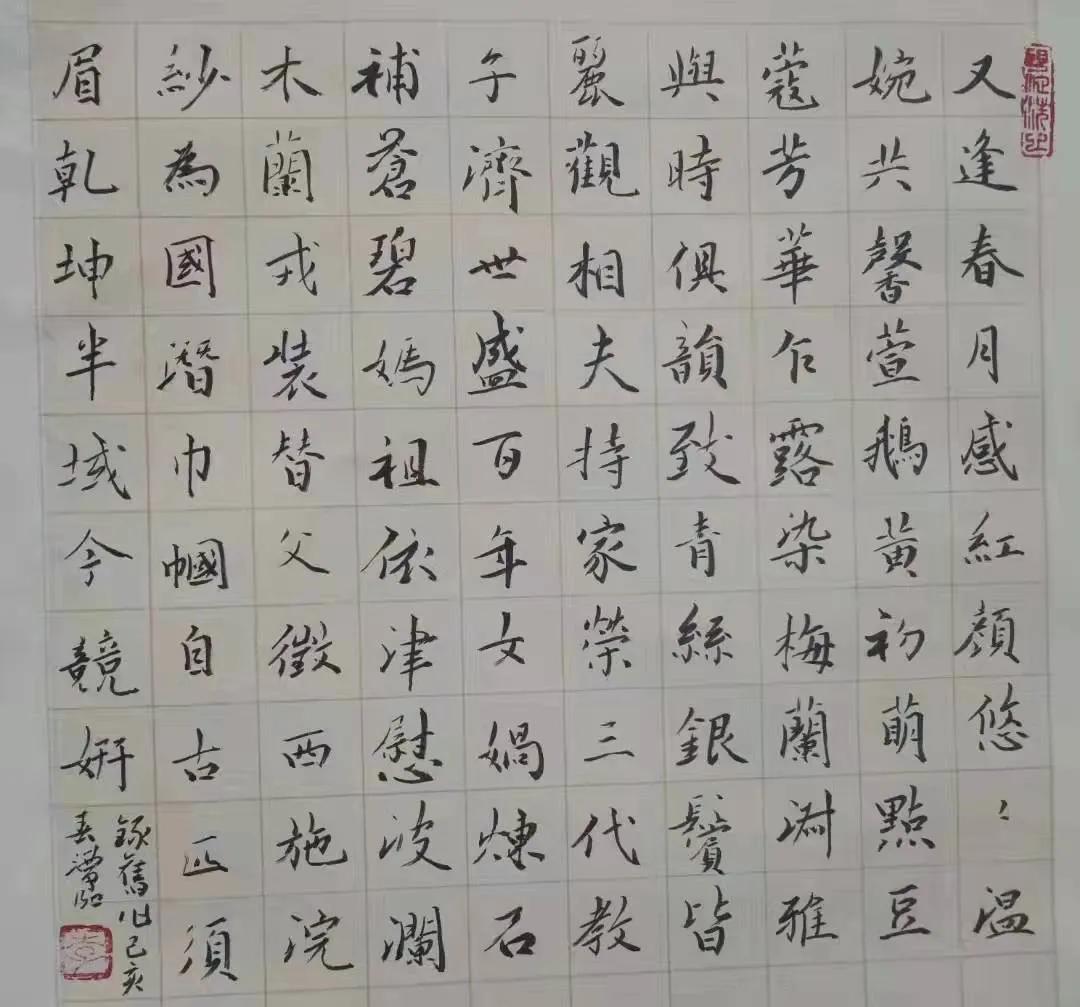 又逢春月感紅顏悠〻温
婉共馨萱鵝黃初萌點豆
蔻芳華乍露染梅蘭淋雅
與時俱韻致青絲銀鬢皆
麗觀相夫持家榮三代教
子濟世盛百年女媧煉石
補蒼碧媽祖依津慰波瀾
木蘭戎裝替父徵西施浣
紗為國潛巾幗自古匹須
眉乾坤半域今競妍
錄舊作己亥
春